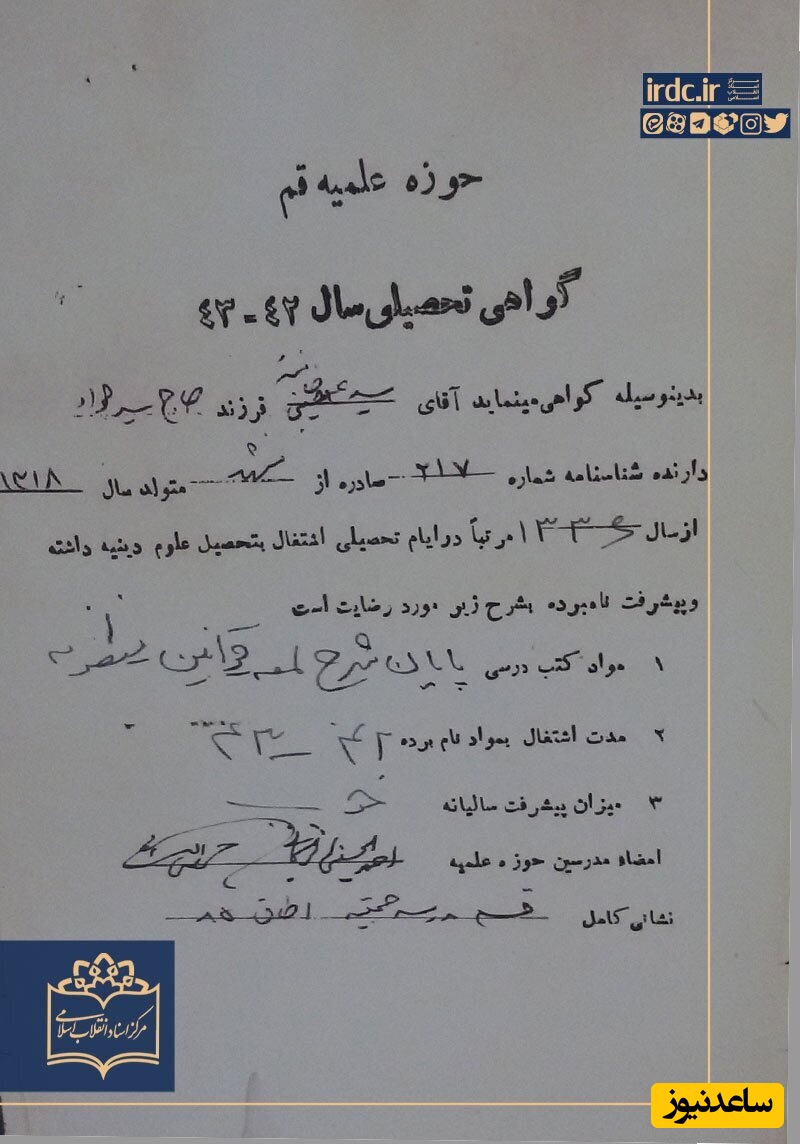 irdc.ir
مرکز
اسناد
انقلاب
اسلامی
حوزه علمیه قم
گواهی تحصیلی سال ٤٢ - ٤٣
بدینوسیله گواهی مینماید آقای سید فرزند حاج سید جواد
دارنده شناسنامه شماره ۲۱۷ صادره از مشهد متولد سال ۱۳۱۸
از سال ۱۳۳۶ مرتباً در ایام تحصیلی اشتغال بتحصیل علوم دینیه داشته
و پیشرفت نامبرده بشرح زیر مورد رضایت است
۱ مواد کتب درسی پایان شرح لمعه قوانین منظومه
۲ مدت اشتغال بمواد نام برده ۴۲ - ۴۳
۳ میزان پیشرفت سالیانه خوب
امضاء مدرسین حوزه علمیه
نشانی کامل قم مدرسه حجتیه اطاق
مرکز اسناد انقلاب اسلامی
ساعدنیوز